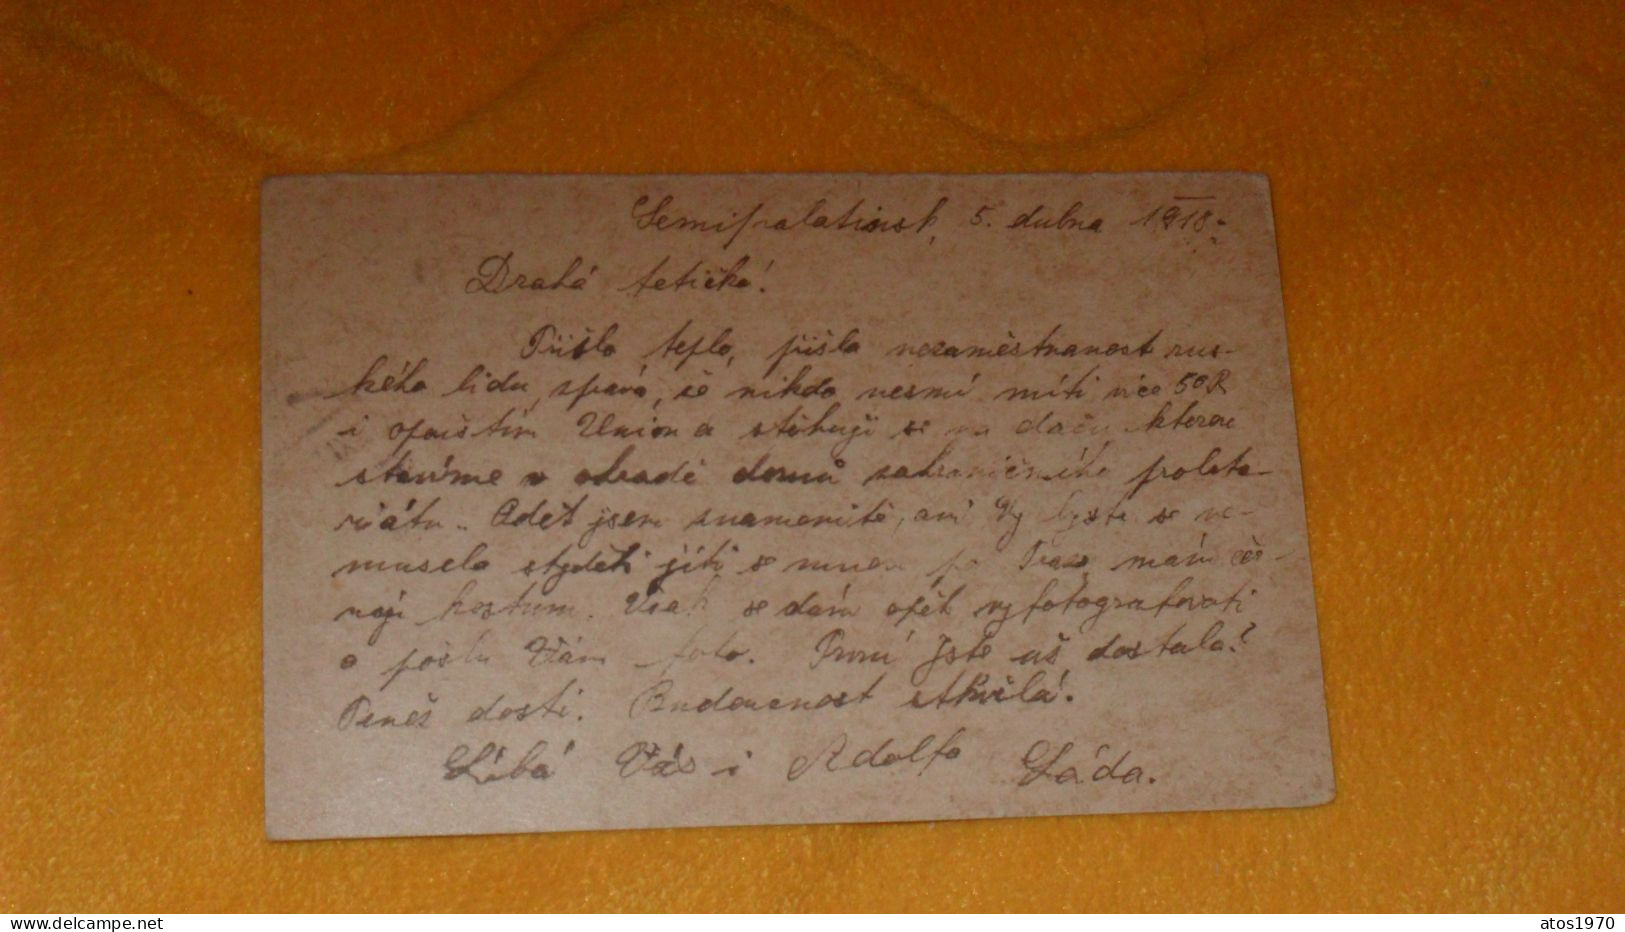 Semipalatinsk, 5. dubna 1918.
Drahá tetičko!
Přišlo teplo, přišla nezaměstnanost rus-
kého lidu, zpráva, že nikdo nesmí míti více 50 R
i opouštím Union a stěhuji se na daču kterou
stavíme v ohradě domů zahraničního proleta-
riátu. Oděť jsem znamenitě, ani Vy byste se ne-
musela styděti jíti se mnou po Praze mám
kostum. Však se dám opět vyfotografovati
a pošlu Vám foto. První jste už dostala?
Peněz dosti. Budoucnost skvělá.
Líbá Vás i Adolfa Láda.
atos1970